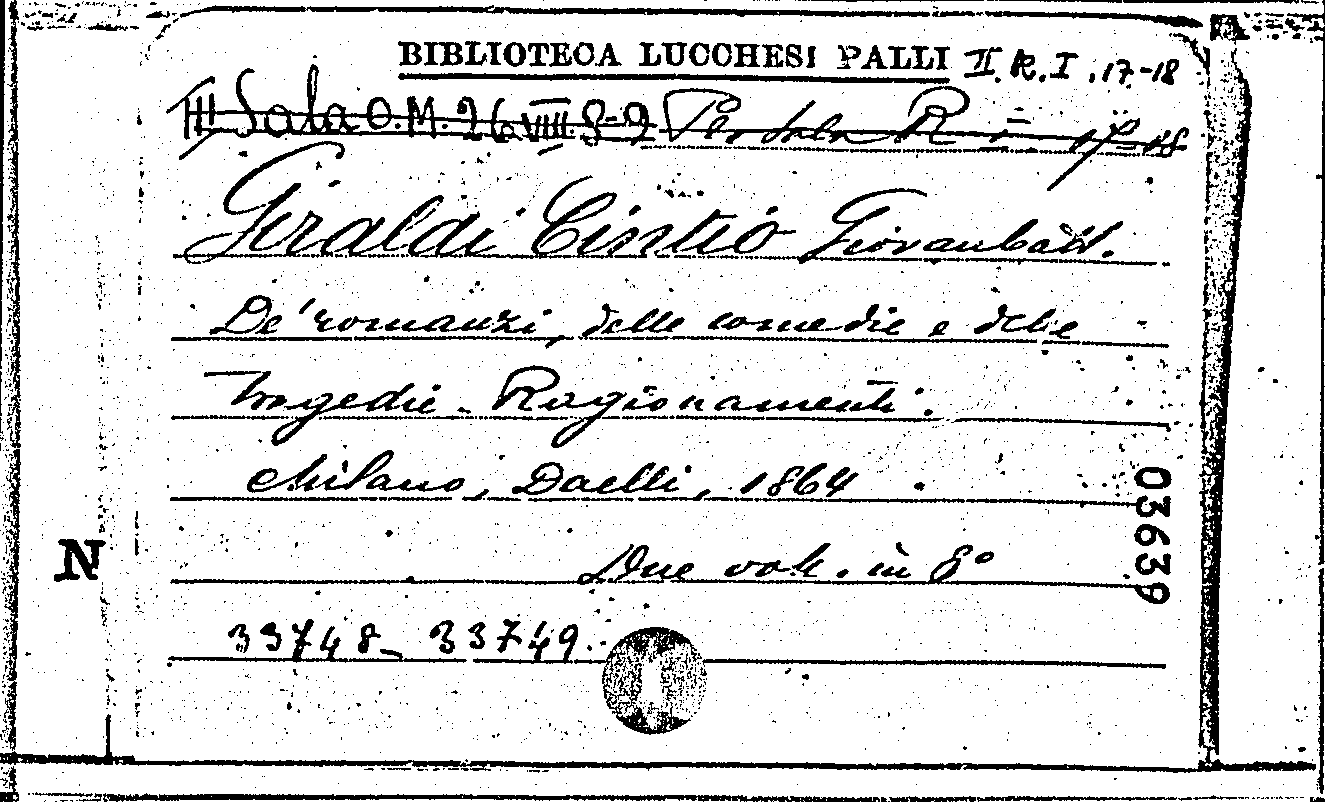 BIBLIOTECA LUCCHESI PALLI II. R. I. 17-18
III Sala O. M. 26 VIIII 8-9 R 17-18
Giraldi Cintio Giovanbatt.
De' romanzi, delle comedie e delle
tragedie. Ragionamenti.
Milano, Daelli, 1864
N
Due voll. in 8°
03639
33748_ 33749.